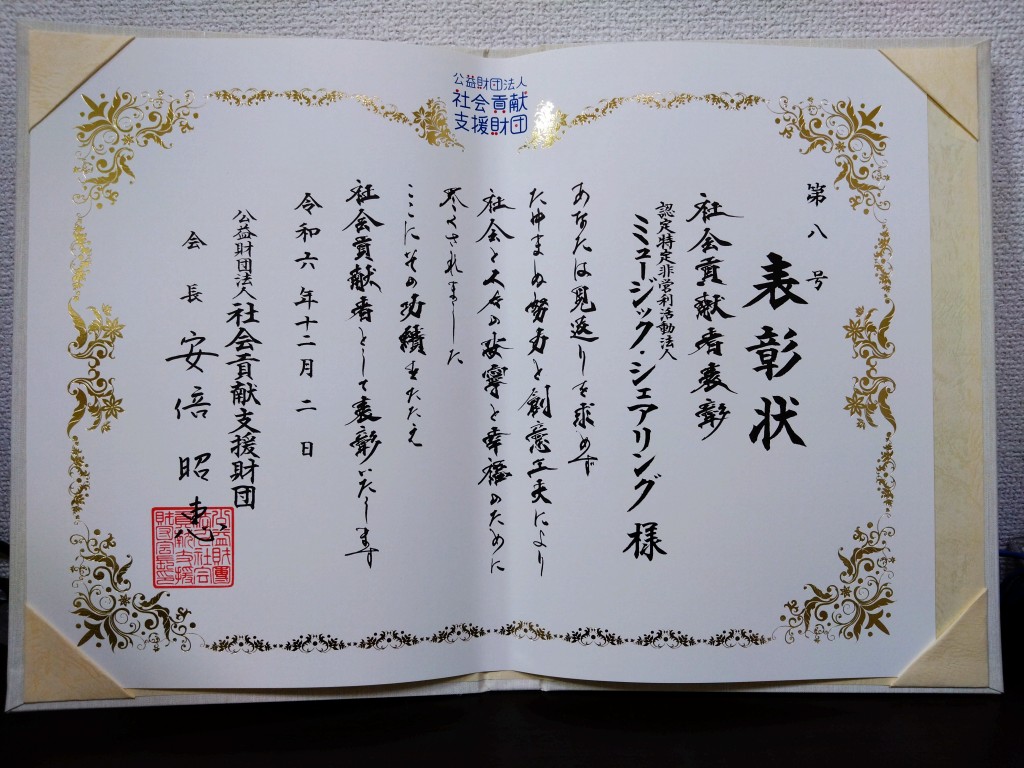 公益財団法人
社会貢献
支援財団
第八号
表彰状
社会貢献者表彰
認定特定非営利活動法人
ミュージック・シェアリング 様
あなたは見返りを求めず
たゆまぬ努力と創意工夫により
社会と人々の安寧と幸福のために
尽くされました
ここにその功績をたたえ
社会貢献者として表彰いたします
令和六年十二月二日
公益財団法人 社会貢献支援財団
会長 安倍昭恵